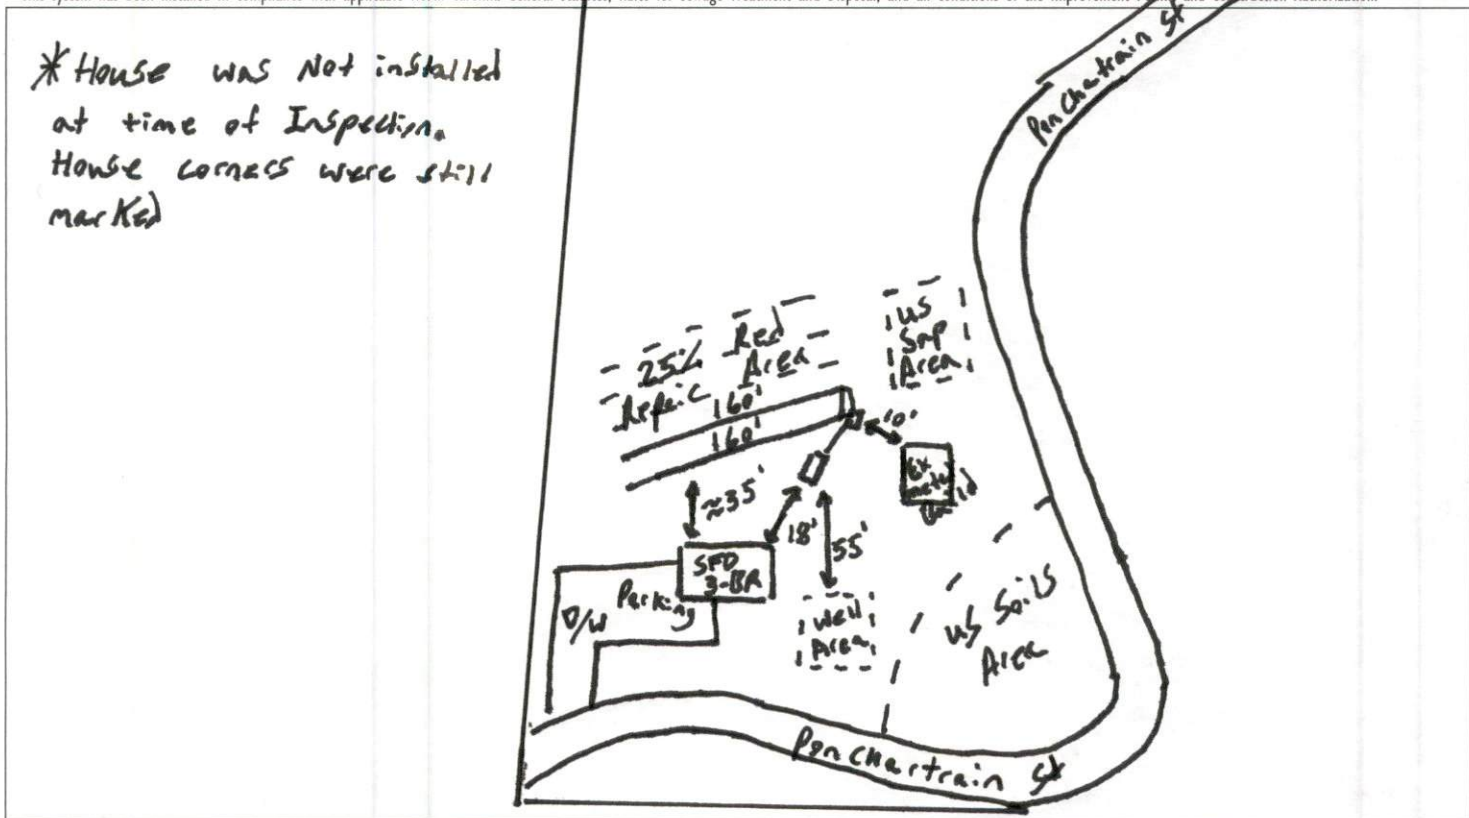 * House was Not installed
at time of Inspection.
House corners were still
marked
Ponchatrain St
US
Smp
Area
25% Red
Repair Area
160'
160'
10'
Ex
metal
Build
≈35'
18'
55'
SFD
3-BR
Parking
D/W
Well
Area
US Soils
Area
Ponchartrain St